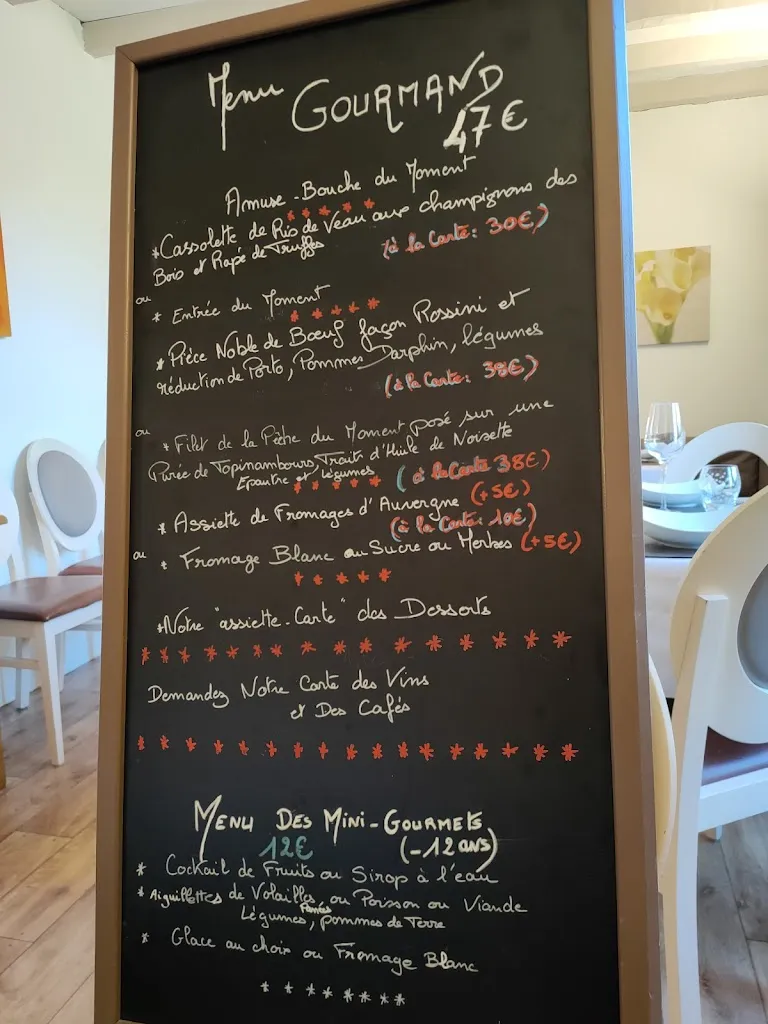 Menu GOURMAND
47€
Amuse-Bouche du Moment
*****
*Cassolette de Ris de Veau aux champignons des
Bois et Rapé de Truffes (à la Carte: 30€)
ou
* Entrée du Moment
*****
* Pièce Noble de Bœuf façon Rossini et
réduction de Porto, Pommes Darphin, légumes
(à la Carte: 38€)
ou
* Filet de la Pêche du Moment posé sur une
Purée de Topinambours, Traits d'Huile de Noisette
Epautre et légumes (à la Carte 38€)
*****
* Assiette de Fromages d'Auvergne (+5€)
(à la Carte: 10€)
ou
* Fromage Blanc au Sucre ou Herbes (+5€)
*****
*Notre "assiette-Carte" des Desserts
****************
Demandez Notre Carte des Vins
et Des Cafés
*****************
MENU DES MINI-GOURMETS
12€ (-12 ans)
* Cocktail de Fruits ou Sirop à l'eau
* Aiguillettes de Volailles Panées, ou Poisson ou Viande
Légumes, pommes de Terre
* Glace au choix ou Fromage Blanc
********